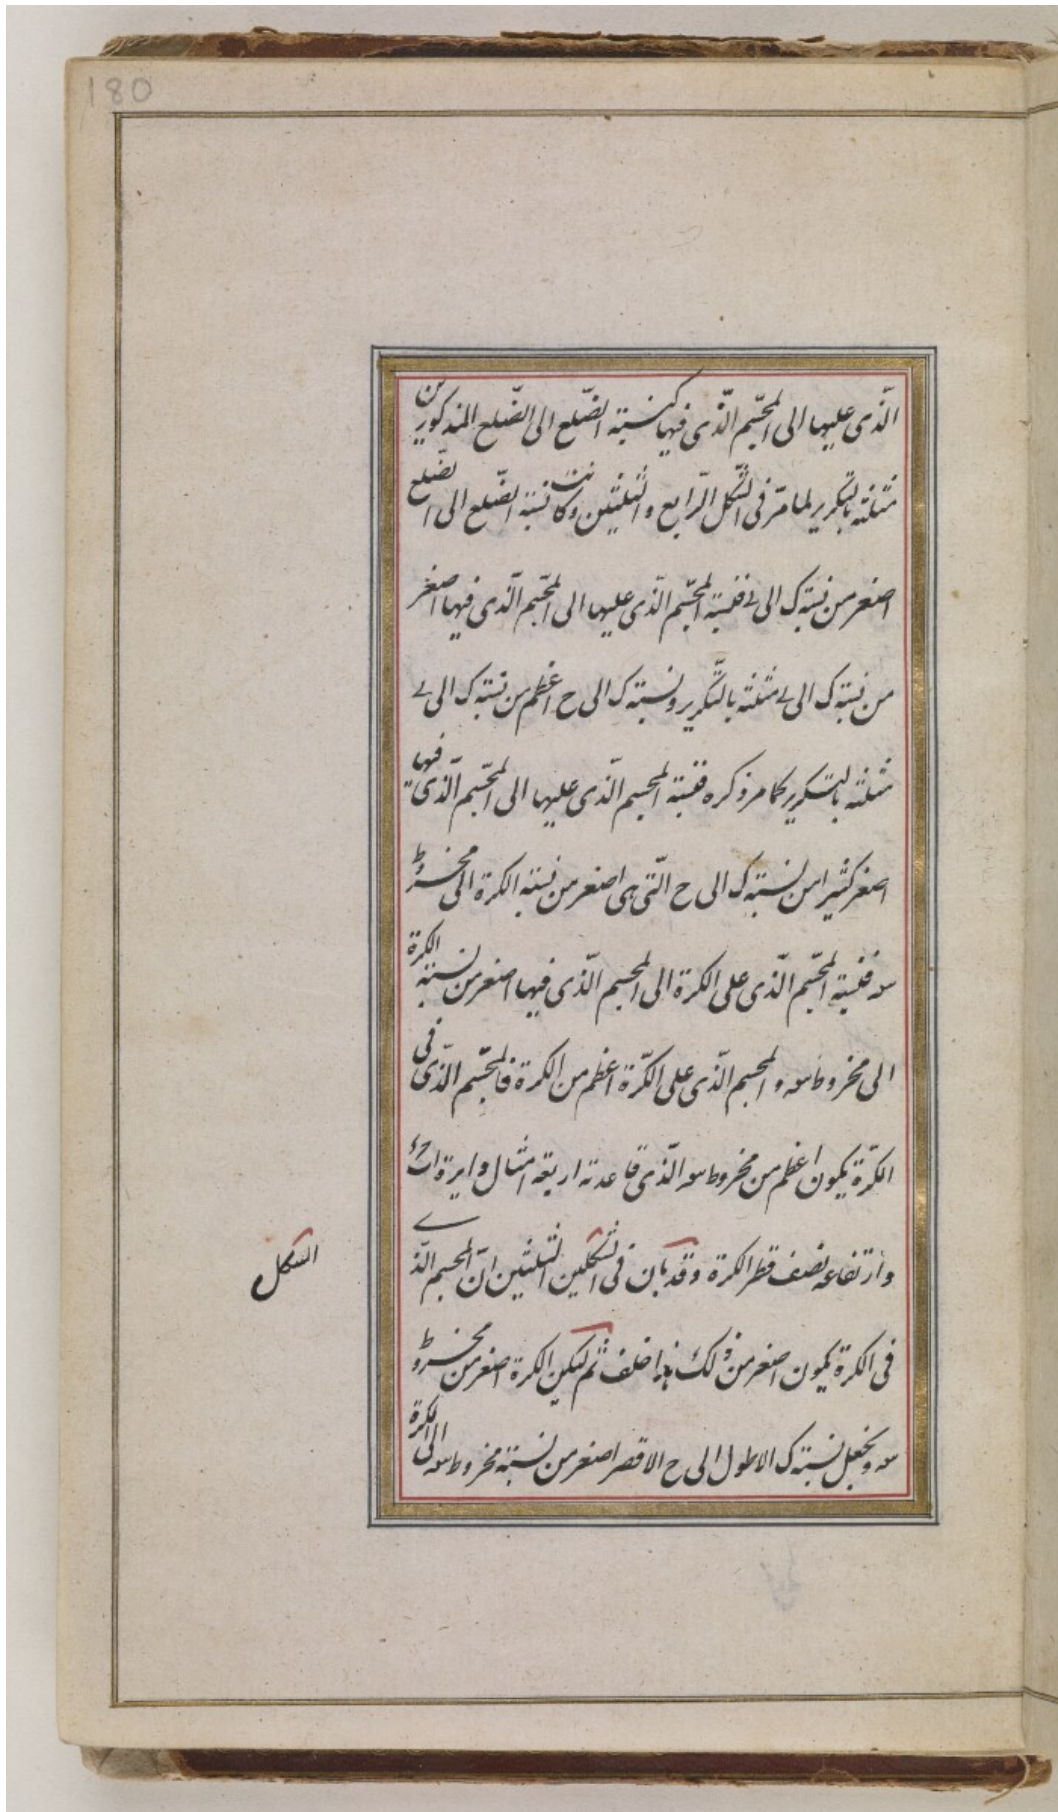 180
الّذى عليها الى المجسّم الّذى فيها كنسبة الضّلع الى الضّلع المذكورين
مثلثة بالتكرير لما مرّ فى الشّكل الرّابع والثلثين وكانت نسبة الضّلع الى الضّلع
اصغر من نسبة ك الى ى فنسبة المجسّم الّذى عليها الى المجسّم الّذى فيها اصغر
من نسبة ك الى ى مثلثة بالتّكرير ونسبة ك الى ح اعظم من نسبة ك الى ى
مثلثة بالتكرير كما مر ذكره فنسبة المجسم الّذى عليها الى المجسّم الّذى فيها
اصغر كثيرا من نسبة ك الى ح الّتى هى اصغر من نسبة الكرة الى مخروط
سه فنسبة المجسّم الّذى على الكرة الى المجسم الّذى فيها اصغر من نسبة الكرة
الى مخروط سه والمجسم الّذى على الكرّة اعظم من الكرة فالمجسّم الّذى فى
الكرّة يكون اعظم من مخروط سه الّذى قاعدته اربعة امثال دايرة
وارتفاعه نصف قطر الكرة وقد بان فى الشّكلين الثلثين انّ المجسم الّذى
الشكل
فى الكرة يكون اصغر من ذلك هذا خلف ثم ليكن الكرة اصغر من مخروط
سه ونجعل نسبة ك الاطول الى ح الاقصر اصغر من نسبة مخروط سه الى الكرة